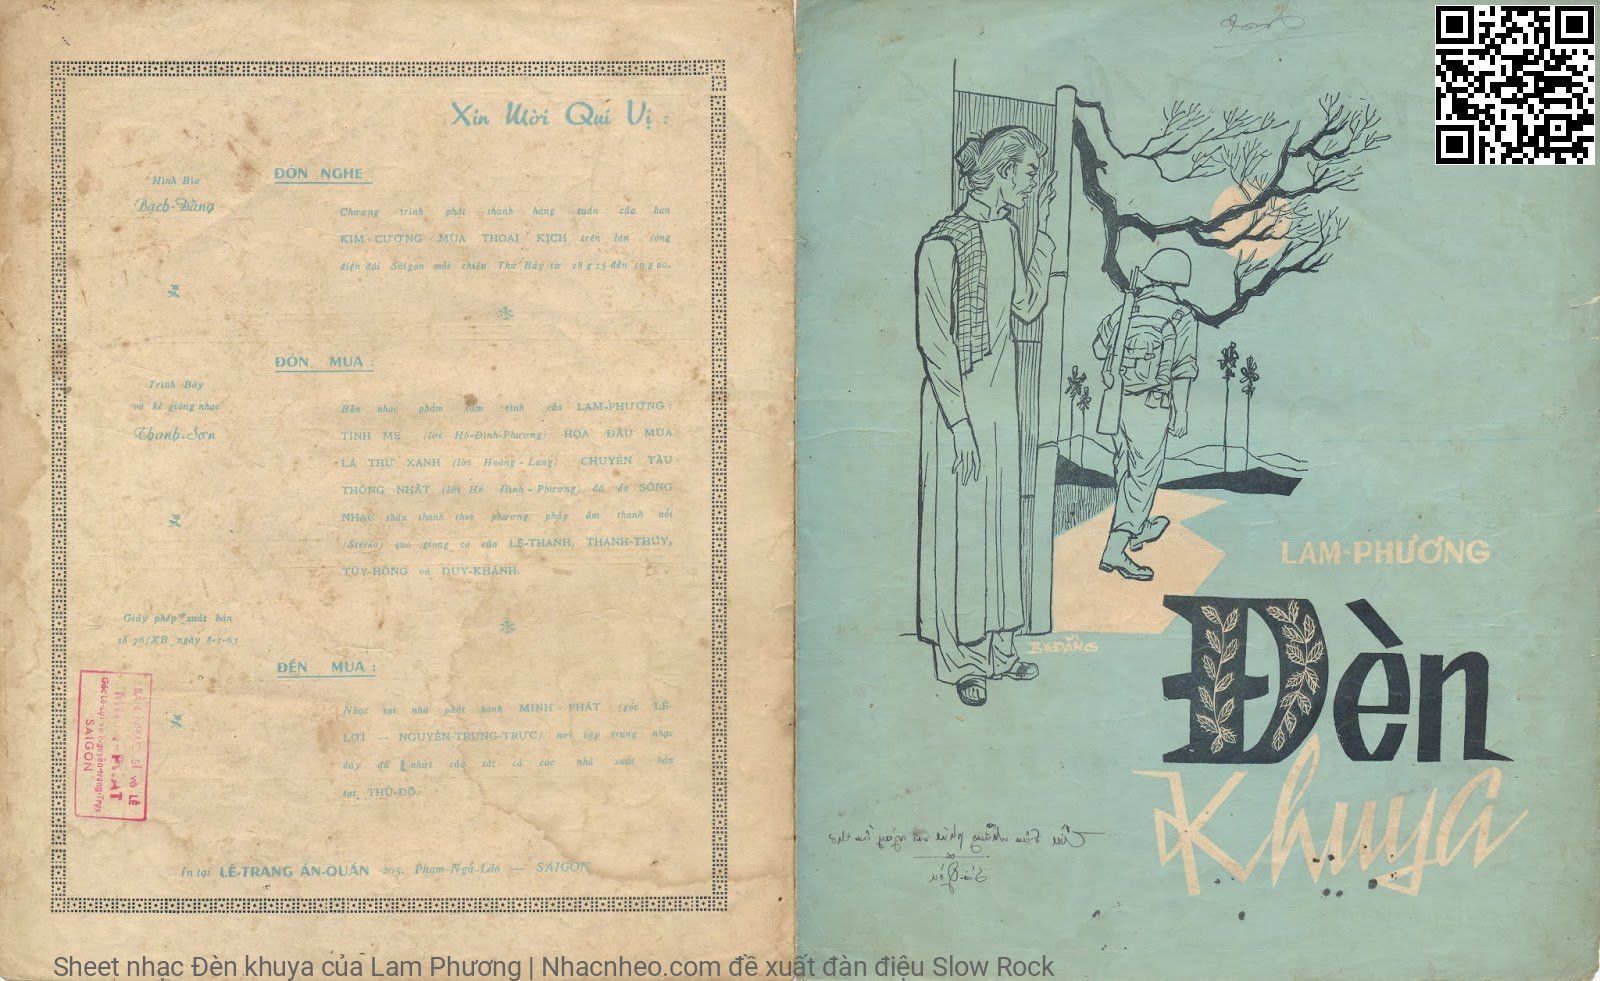 Xin Mời Quí Vị :
Hình Bìa
Bạch-Đằng
ĐÓN NGHE :
Chương trình phát thanh hàng tuần của ban
KIM-CƯƠNG MÙA THOẠI KỊCH trên làn sóng
điện đài Saigon mỗi chiều Thứ Bảy từ 18 g 15 đến 19 g 00.
Trình Bày
và kẻ giòng nhạc
Thanh-Sơn
ĐÓN MUA :
Bản nhạc phẩm tâm tình của LAM-PHƯƠNG :
TÌNH MẸ (lời Hồ-Đình-Phương) HOA ĐẦU MÙA
LÁ THƯ XANH (lời Hoàng-Lang) CHUYẾN TÀU
THỐNG NHẤT (lời Hồ Đình-Phương) đã do SÓNG
NHẠC thâu thanh theo phương pháp âm thanh nổi
(Stéréo) qua giọng ca của LỆ-THANH, THANH-THÚY,
TÚY-HỒNG và DUY-KHÁNH.
Giấy phép xuất bản
số 76/XB ngày 8-1-63
ĐẾN MUA :
Nhạc tại nhà phát hành MINH-PHÁT (góc LÊ
LỢI — NGUYỄN-TRUNG-TRỰC) nơi tập trung nhạc
đầy đủ nhứt của tất cả các nhà xuất bản
tại THỦ-ĐÔ.
Góc Lê-Lợi và Nguyễn-Trung-Trực
SAIGON
In tại LÊ-TRANG ẤN-QUÁN 205, Phạm-Ngũ-Lão — SAIGON
LAM-PHƯƠNG
Đèn
Khuya
B.ĐẰNG
Sheet nhạc Đèn khuya của Lam Phương | Nhacnheo.com đề xuất đàn điệu Slow Rock